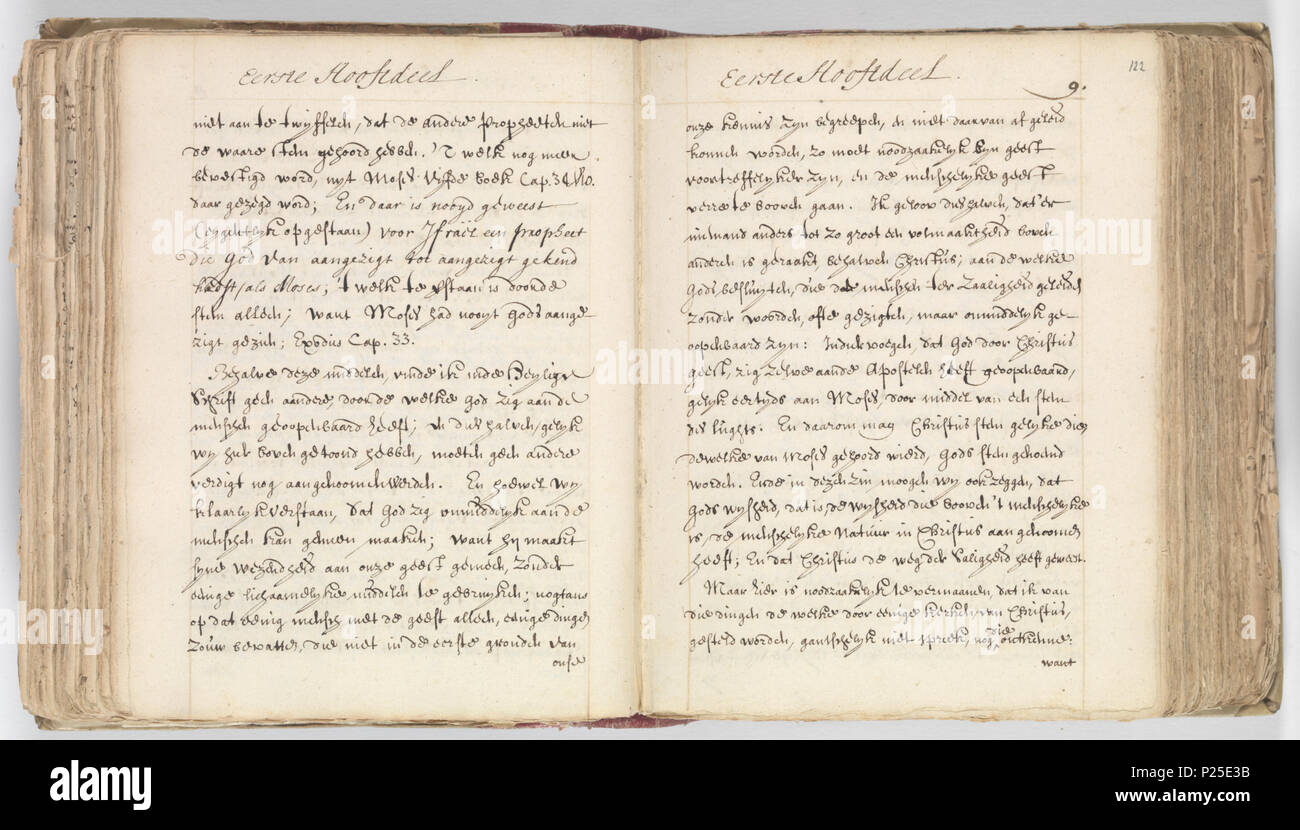 Eerste Hoofdeel.
niet aan te twyffelen, dat de andere Propheeten niet
de waare stem gehoord hebben. 't welk nog meer
bevestigd word, uyt Moses Vyfde boek Cap. 34
daar gezegd word; En daar is nooyd geweest
(eygentlyk opgestaan) voor Israël een propheet
die God van aangezigt tot aangezigt gekend
heeft, als Moses; 't welk te verstaan is door de
stem alleen; want Moses had nooyt Gods aange
zigt gezien; Exodus Cap. 33.
Behalve deze middelen, vinde ik inde Heylige
Schrift geen andere, door de welke God zig aan de
menschen geoopenbaard heeft; en dieshalven, gelyk
wy hier boven getoond hebben, moeten geen andere
verdigt nog aangenoomen werden. En hoewel wy
klaarlyk verstaan, dat God zig onmiddelyk aan de
menschen kan gemeen maaken; want hy maakt
syne wezendheid aan onze geest gemeen, zonder
eenige lichaamelyke middelen te gebruyken; nogtans
op dat eenig mensch met de geest alleen, eenige dingen
zouw bevatten, die niet in de eerste gronden van
onse
Eerste Hoofdeel.
122
9.
onze kennis zyn begreepen, en niet daar van af geleid
konnen worden, zo moet noodzaakelyk syn geest
voortreffelyker zyn, en de menschelyke geest
verre te boven gaan. Ik geloov dieshalven, dat'er
niemand anders tot zo groot een volmaaktheid boven
anderen is geraakt, behalven Christus; aan de welke
Gods besluyten, die de menschen ter zaaligheid geleiden
zonder woorden, ofte gezigten, maar onmiddelyk ge-
oopenbaard zyn: Indiervoegen, dat God door Christus
geest, zig zelve aan de Apostelen heeft geoopenbaard,
gelyk eertyds aan Moses, door middel van een stem
des lughts. En daarom mag Christus stem gelyk die
dewelke van Moses gehoord wierd, Gods stem genoemd
worden. Ende in dezen zin, moogen wy ook zeggen, dat
Gods wysheid, dat is, de wysheid die boven 't menschelyke
is, de menschelyke Natuur in Christus aangenoomen
heeft; En dat Christus de weg der Saligheid heeft geweest.
Maar hier is noodzaakelyk te vermaanen, dat ik van
die dingen de welke door eenige kerken van Christus,
gesteld worden, gantschelyk niet spreek, nog die ontkenne:
want
alamy
www.alamy.com
Image ID: P25E3B